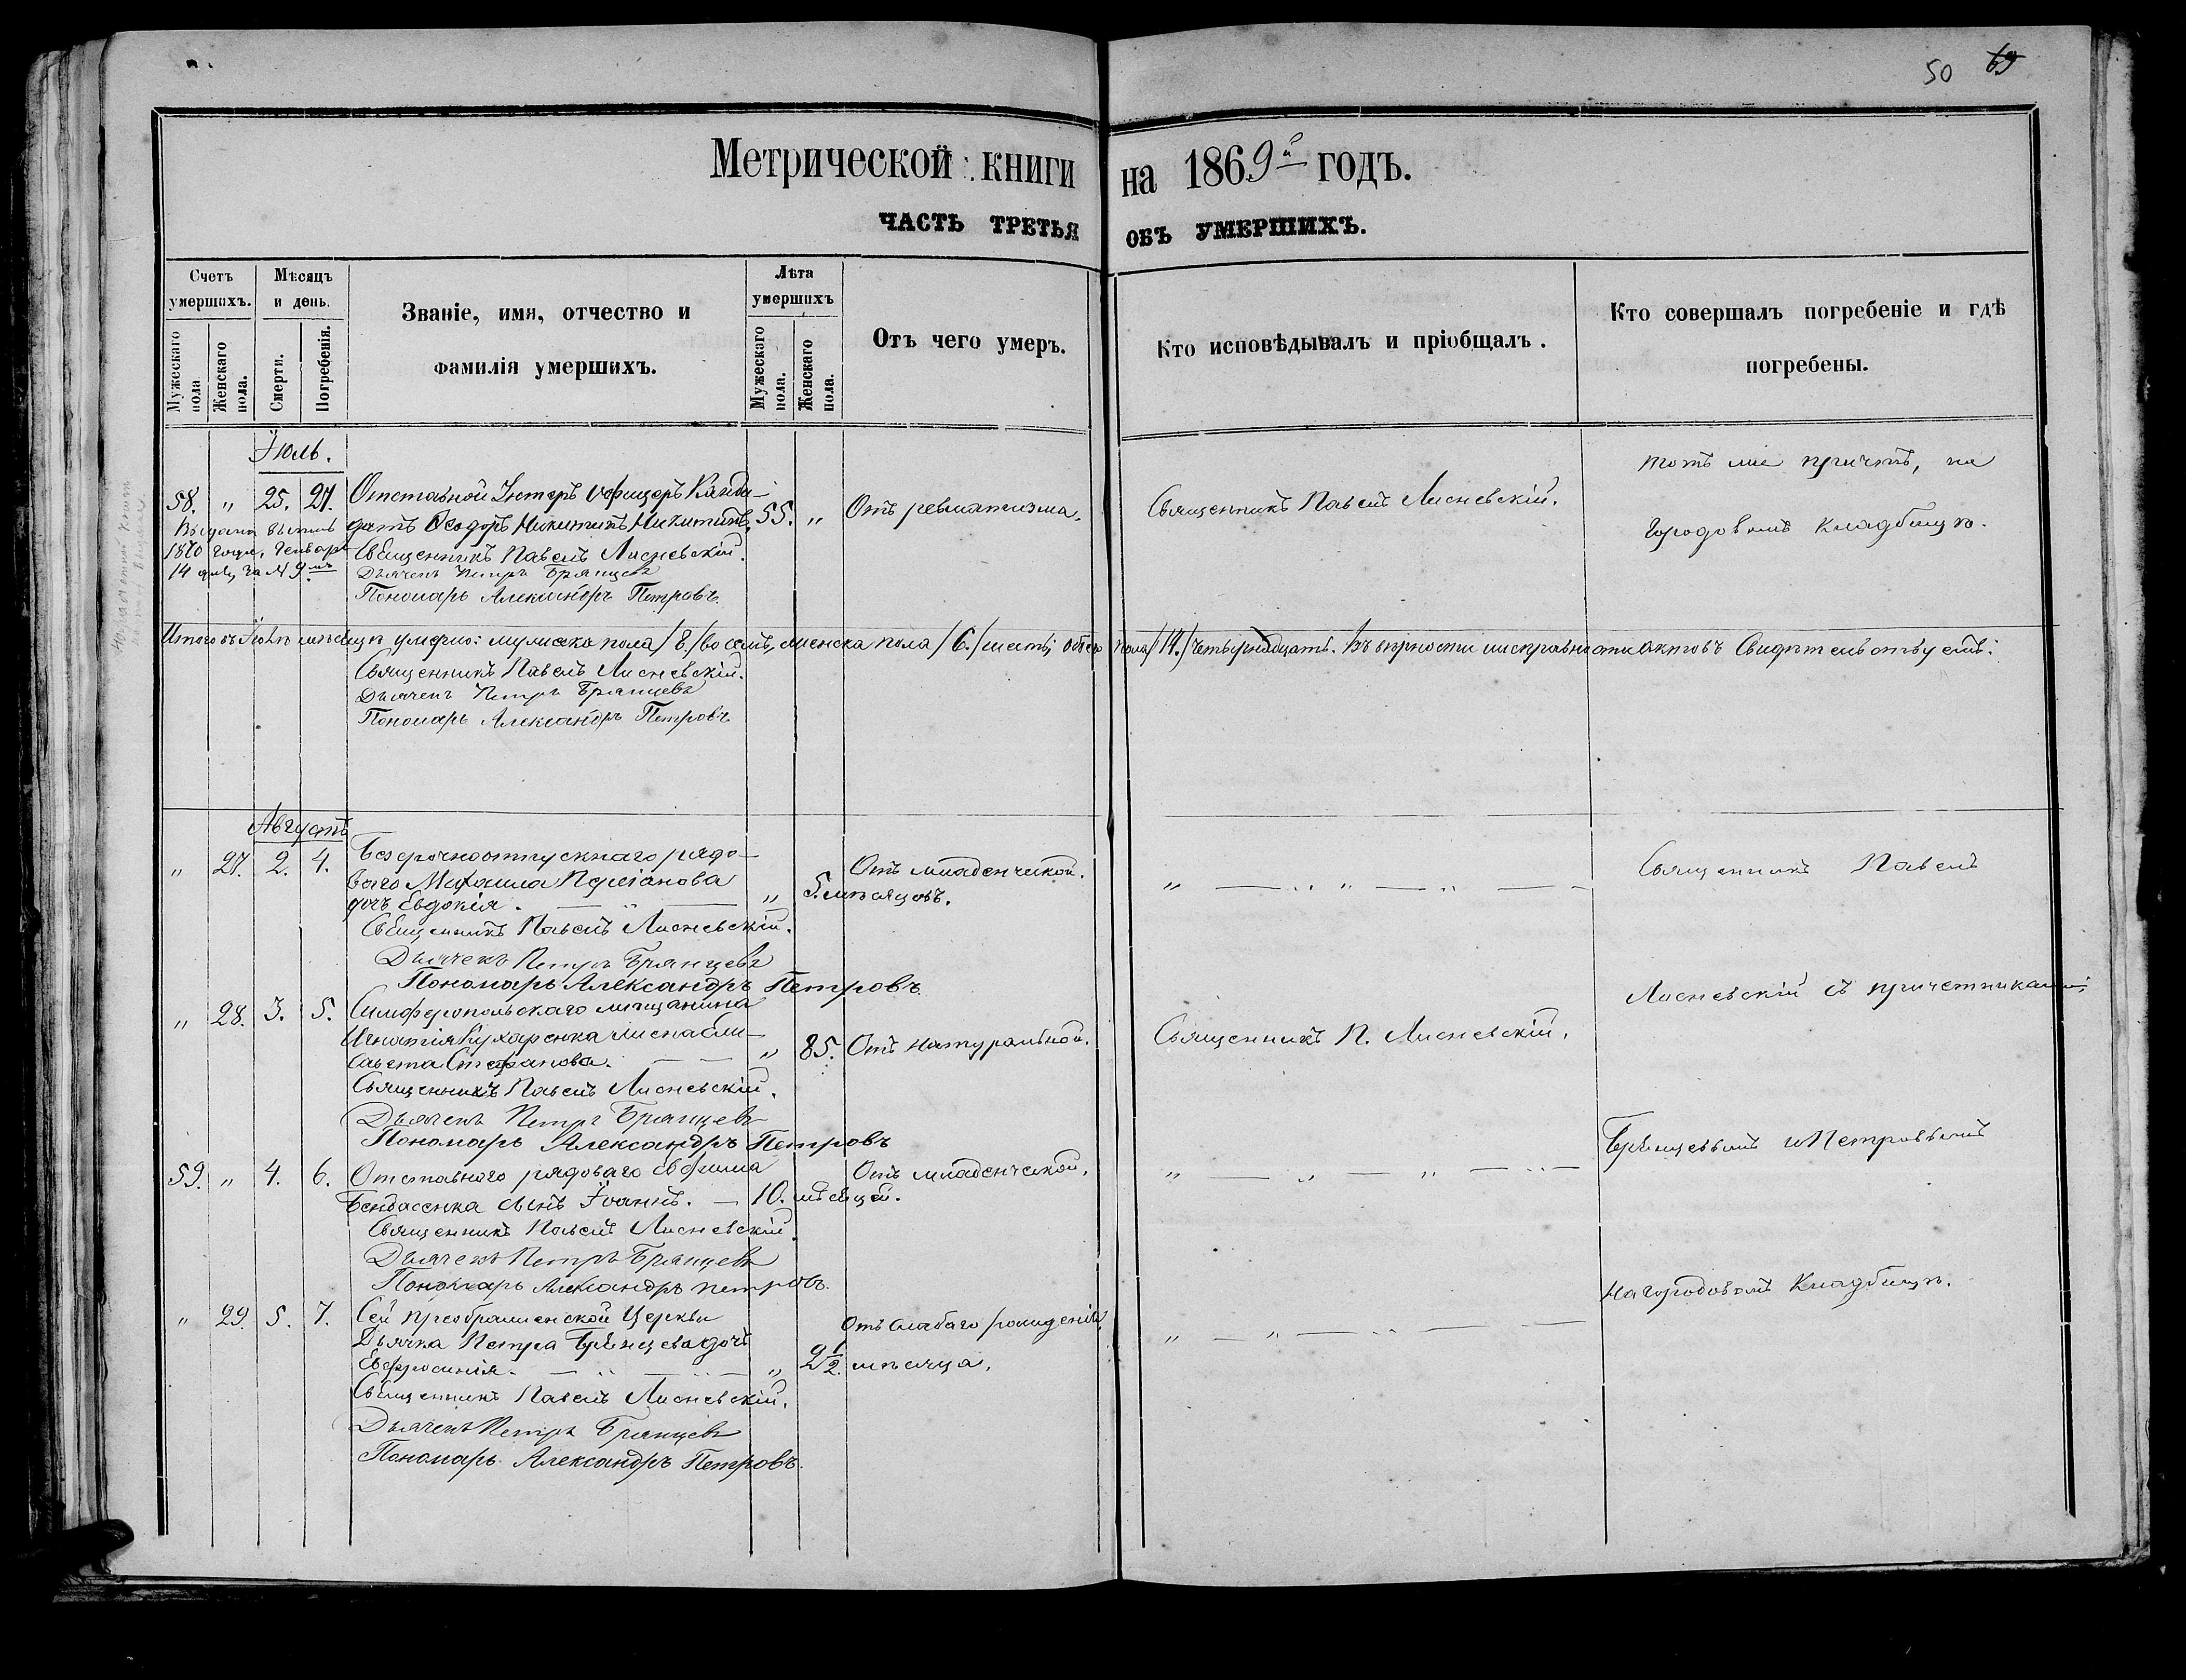 50 69
Метрической книги на 1869й годъ.
ЧАСТЬ ТРЕТЬЯ ОБЪ УМЕРШИХЪ.
Счетъ умершихъ.
Мужескаго пола.
Женскаго пола.
Мѣсяцъ и день.
Смерти.
Погребенія.
Званіе, имя, отчество и фамилія умершихъ.
Лѣта умершихъ
Мужескаго пола.
Женскаго пола.
Отъ чего умеръ.
Кто исповѣдывалъ и пріобщалъ.
Кто совершалъ погребеніе и гдѣ погребены.
Іюль.
58. " 25. 27. Отставной Унтеръ Офицеръ Канди-
датъ Ѳеодоръ Никитинъ Никитинъ. 55. " Отъ ревматизма. Священникъ Павелъ Лисневскій. тотъ же причтъ, на
городовомъ кладбищѣ.
Выдана выпись
1870 года, Генваря
14 дня, за № 9мъ
Священникъ Павелъ Лисневскій.
Дьячекъ Петръ Брянцевъ
Пономарь Александръ Петровъ.
Итого въ Іюлѣ мѣсяцѣ умерло: мужеска пола /8./ восемь, женска пола /6./ шесть, обоего пола /14./ четырнадцать. Въ вѣрности и исправности актовъ Свидѣтельствуемъ:
Священникъ Павелъ Лисневскій.
Дьячекъ Петръ Брянцевъ
Пономарь Александръ Петровъ
Августъ
" 27. 2. 4. Безсрочноотпускнаго рядо-
ваго Михаила
дочь Евдокія. " 5. мѣсяцовъ. Отъ младенческой. Священникъ Павелъ
Священникъ Павелъ Лисневскій.
Дьячекъ Петръ Брянцевъ
Пономарь Александръ Петровъ.
" 28. 3. 5. Симферопольскаго мѣщанина
Игнатія Кухаренка жена Ели-
савета Стефанова. " 85. Отъ натуральной. Священникъ П. Лисневскій. Лисневскій съ причетниками:
Священникъ Павелъ Лисневскій.
Дьячекъ Петръ Брянцевъ
Пономарь Александръ Петровъ
59. " 4. 6. Отставнаго рядоваго Евфима
Бендасенка сынъ Іоаннъ. 10. мѣсяцей. Отъ младенческой. Брянцевымъ и Петровымъ
Священникъ Павелъ Лисневскій.
Дьячекъ Петръ Брянцевъ
Пономарь Александръ Петровъ.
" 29. 5. 7. Сей Преображенской Церкви
Дьячка Петра Брянцева дочь
Евфросинія. " 2 1/2. мѣсяца. Отъ слабаго рожденія. На городовомъ кладбищѣ.
Священникъ Павелъ Лисневскій.
Дьячекъ Петръ Брянцевъ
Пономарь Александръ Петровъ.